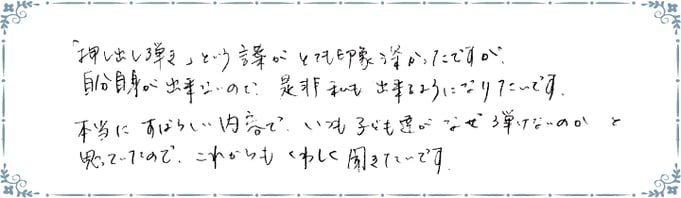 「押し出し弾き」という言葉がとても印象深かったですが、
自分自身が出来ないので、是非私も出来るようになりたいです。
本当にすばらしい内容で、いつも子ども達がなぜ弾けないのかと
思っていたので、これからもくわしく聞きたいです。